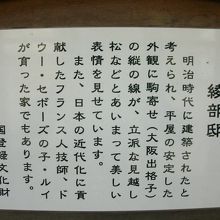 綾部邸
明治時代に建築されたと
考えられ、平屋の安定した
外観に駒寄せ（大阪出格子）
の縦の線が、立派な見越し
松などとあいまって美しい
表情を見せています。
また、日本の近代化に貢
献したフランス人技師、ド
ウー・セボーズの子・ルイ
が育った家でもあります。
国登録文化財